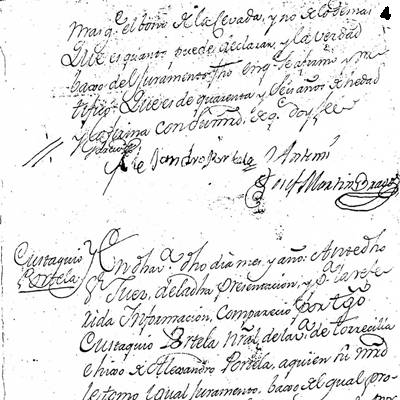 4
mas q.e el bono de la Cevada, y no de lo demas
Que es quanto puede declarar, y la verdad
bajo del juramento fho en q.e se afirmó y ra
tificó. Que es de quarenta y seis años de hedad
y la firma con su md. de q.e doy fee
Alejandro Portela Antemi
Josef Martin Bravo
Eustaquio Portela
En dha v.a dho dia mes, y año: Ante dho
S.r Juez, de la dha presentacion, y p.a la refe
rida Informacion, Comparecio por tgo
Eustaquio Portela nral de la v.a de torrecilla
e hijo de Alexandro Portela, a quien su md
le tomo igual juramento, bajo del qual pro-